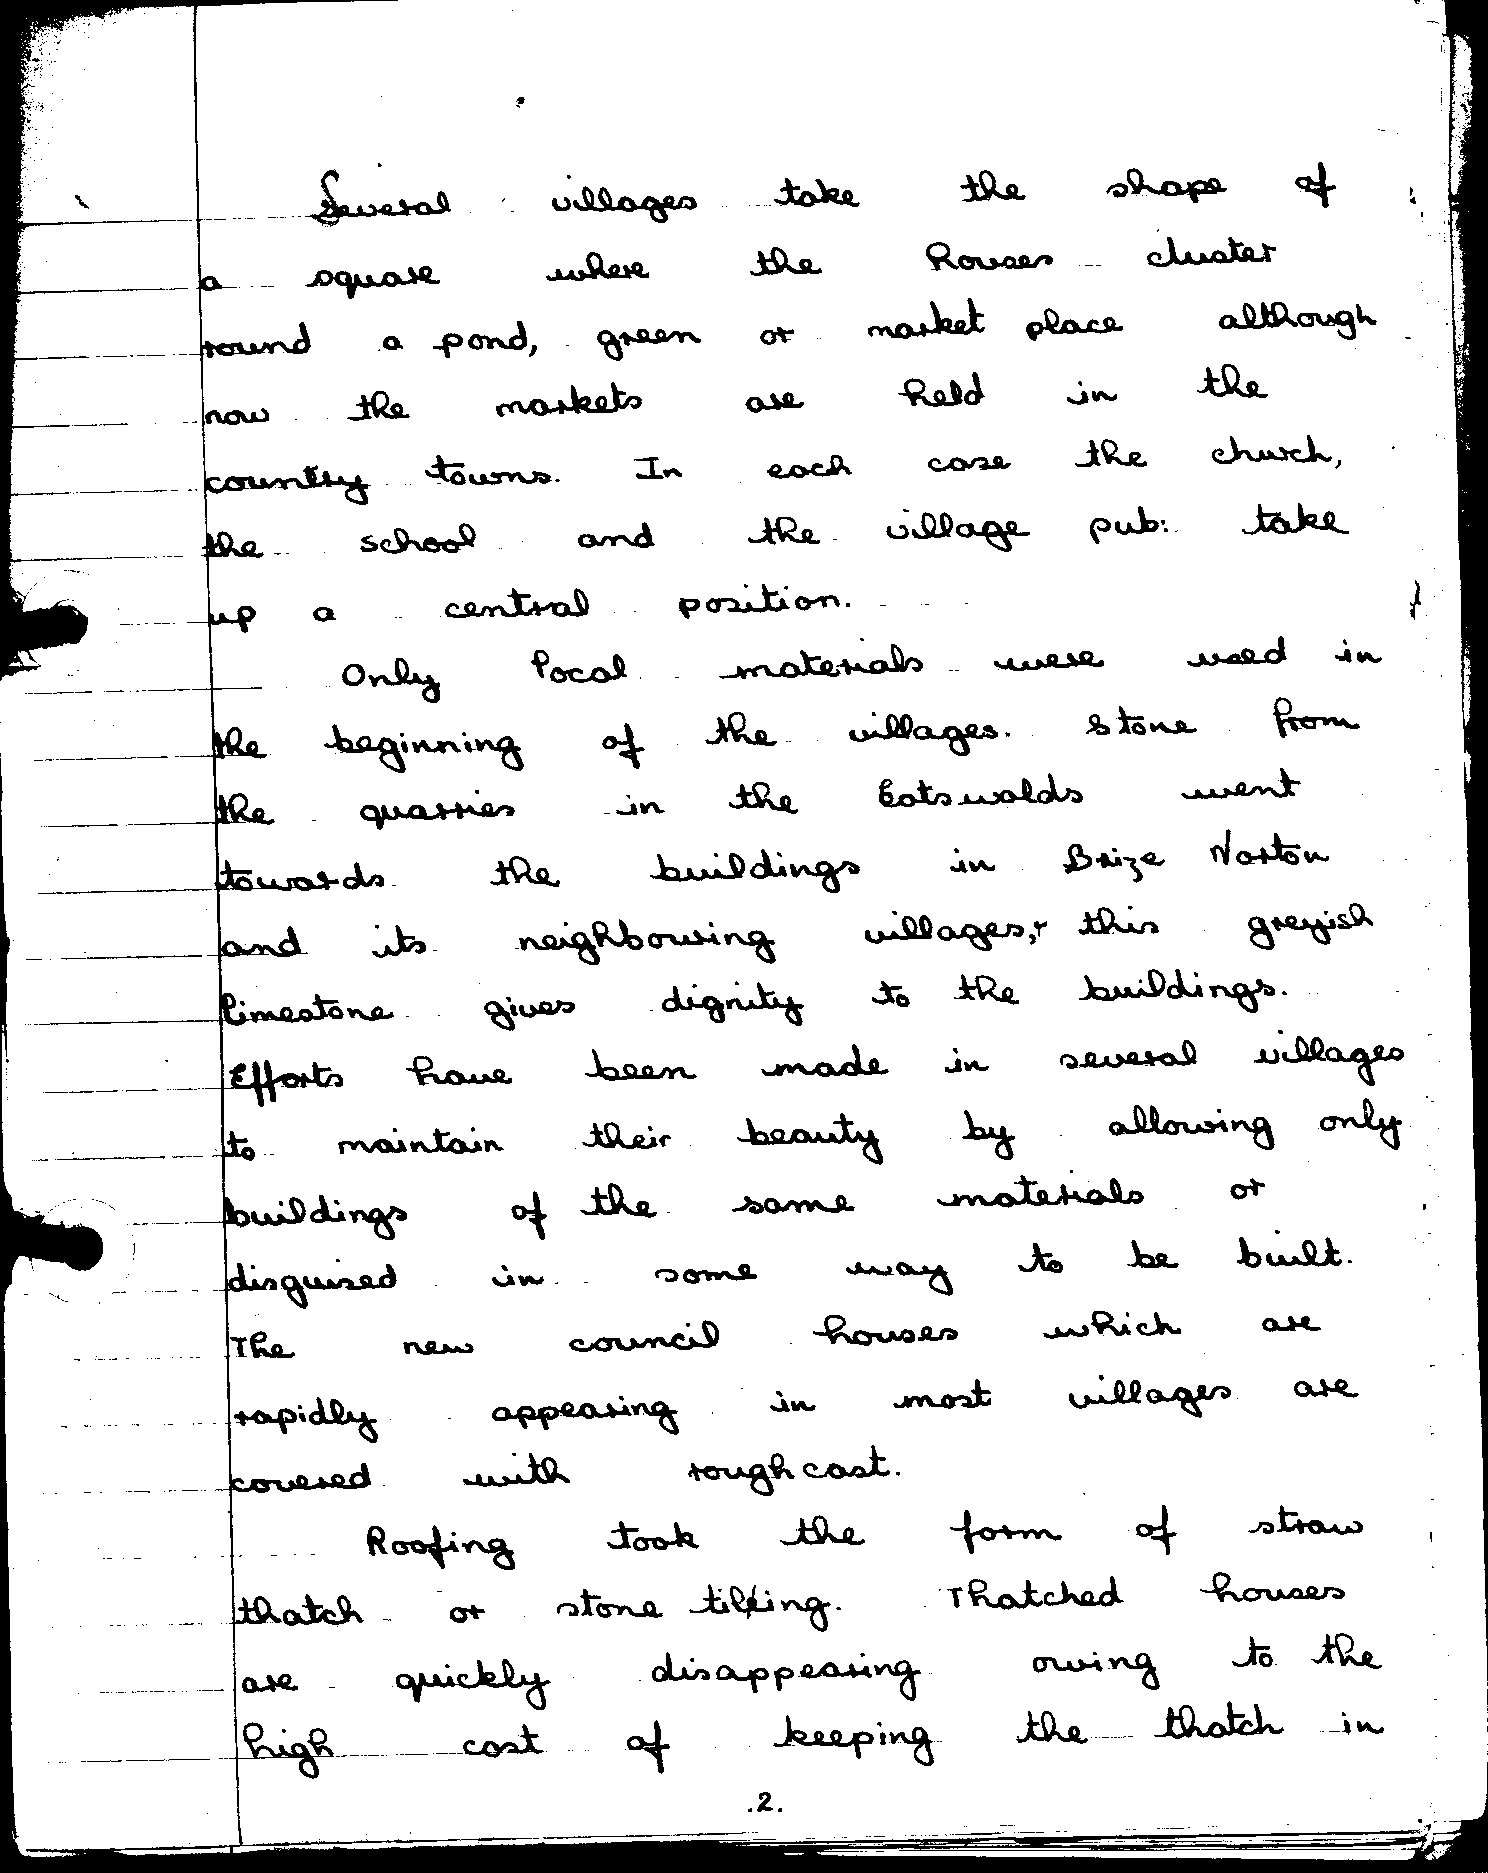 Several villages take the shape of
a square where the houses cluster
round a pond, green or market place although
now the markets are held in the
country towns. In each case the church,
the school and the village pub: take
up a central position.
Only local materials were used in
the beginning of the villages. Stone from
the quarries in the Cotswolds went
towards the buildings in Brize Norton
and its neighbouring villages, this greyish
limestone gives dignity to the buildings.
Efforts have been made in several villages
to maintain their beauty by allowing only
buildings of the same materials or
disguised in some way to be built.
The new council houses which are
rapidly appearing in most villages are
covered with roughcast.
Roofing took the form of straw
thatch or stone tiling. Thatched houses
are quickly disappearing owing to the
high cost of keeping the thatch in
.2.